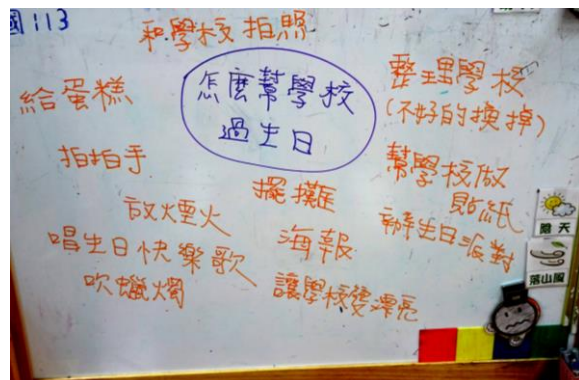 國113
和學校拍照
怎麼幫學校
過生日
整理學校
(不好的換掉)
給蛋糕
拍拍手
幫學校做
貼紙
擺攤
放煙火
辦生日派對
海報
唱生日快樂歌
吹蠟燭
讓學校變漂亮
陰天
落山風